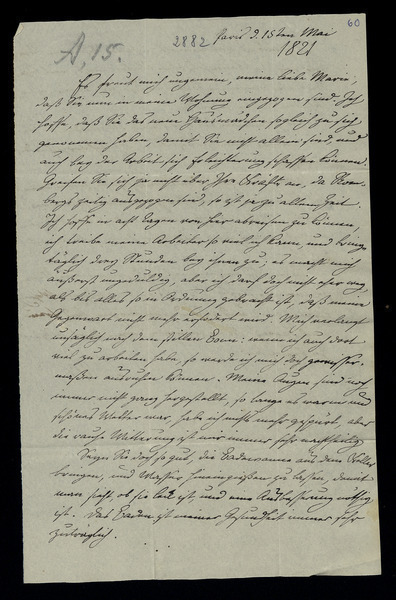 60
A, 15.
2882
Paris d. 15ten Mai
1821
Es freut mich ungemein, meine liebe Marie,
daß Sie nun in meine Wohnung eingezogen sind. Ich
hoffe, daß Sie das neue Hausmädchen sogleich zu sich
genommen haben, damit Sie nicht allein sind, und
auch bey der Arbeit sich Erleichterung schaffen können.
Greifen Sie sich ja nicht über Ihre Kräfte an, da
zeitig ausgezogen sind, so ist ja zu allem Zeit.
Ich hoffe in acht Tagen von hier abreisen zu können,
ich treibe meine Arbeiter so viel ich kann, und bringe
täglich drey Stunden bey ihnen zu; es macht mich
äußerst ungeduldig aber ich darf doch nicht eher weg,
als bis alles so in Ordnung gebracht ist, daß meine
Gegenwart nicht mehr erfodert wird. Mich verlangt
unsäglich nach dem stillen Bonn: wenn ich auch dort
viel zu arbeiten habe so werde ich mich doch gewisser-
maßen ausruhen können. Meine Augen sind noch
immer nicht ganz hergestellt, so lange es warm und
schönes Wetter war, habe ich nichts mehr gespürt, aber
die rauhe Witterung ist mir immer sehr nachtheilig.
Seyn Sie doch so gut, die Badewanne aus dem Keller
bringen, und Wasser hineingießen zu lassen, damit
man sieht ob sie leck ist und eine Ausbesserung nöthig
ist. Das Baden ist meiner Gesundheit immer sehr
zuträglich.